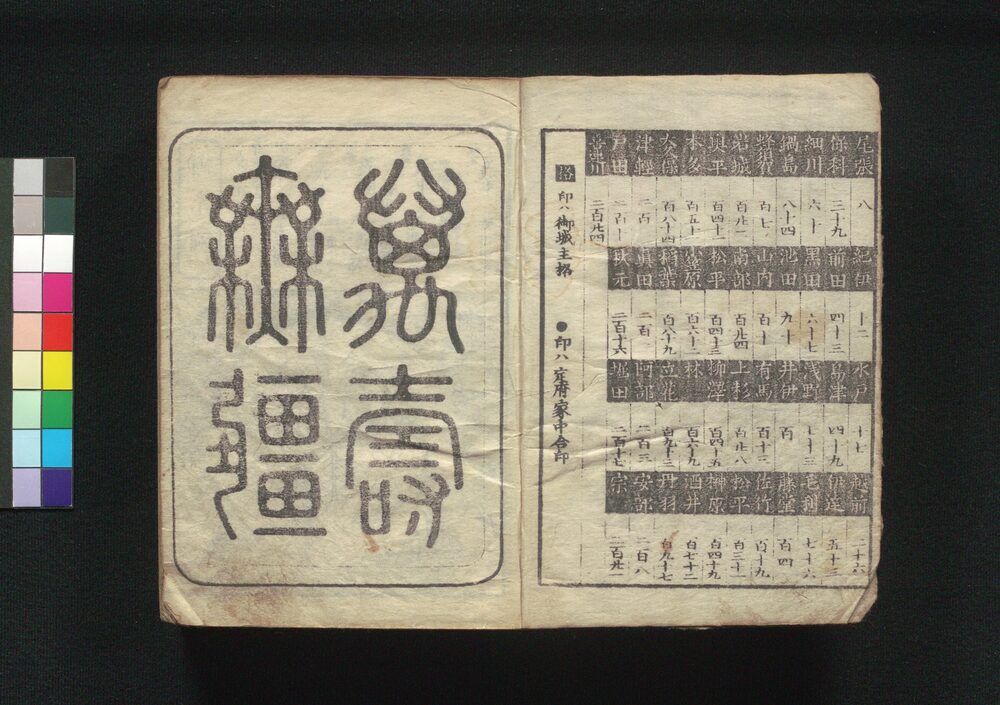 尾張 八 紀伊 十二 水戸 十七 越前 二十六
保科 三十九 前田 四十三 島津 四十九 伊達 五十三
細川 六十 黒田 六十七 浅野 七十三 毛利 七十六
鍋島 八十四 池田 九十 井伊 百 藤堂 百四
蜂須賀 百七 山内 百十 有馬 百十三 佐竹 百十九
岩城 百廿一 南部 百廿四 上杉 百廿八 松平 百三十一
奥平 百四十一 松平 百四十三 柳澤 百四十五 榊原 百四十九
本多 百五十一 百六十二 林 百六十九 酒井 百七十二
大久保 百八十四 稲葉 百八十九 立花 百九十三 丹羽 百九十七
津輕 二百 眞田 二百一 阿部 二百三 安部 二百八
戸田 秋元 二百十六 堀田 二百十七 宗 二百廿一
喜連川 二百廿四
印ハ御城主格 ●印ハ定府家中合印
萬壽
無疆